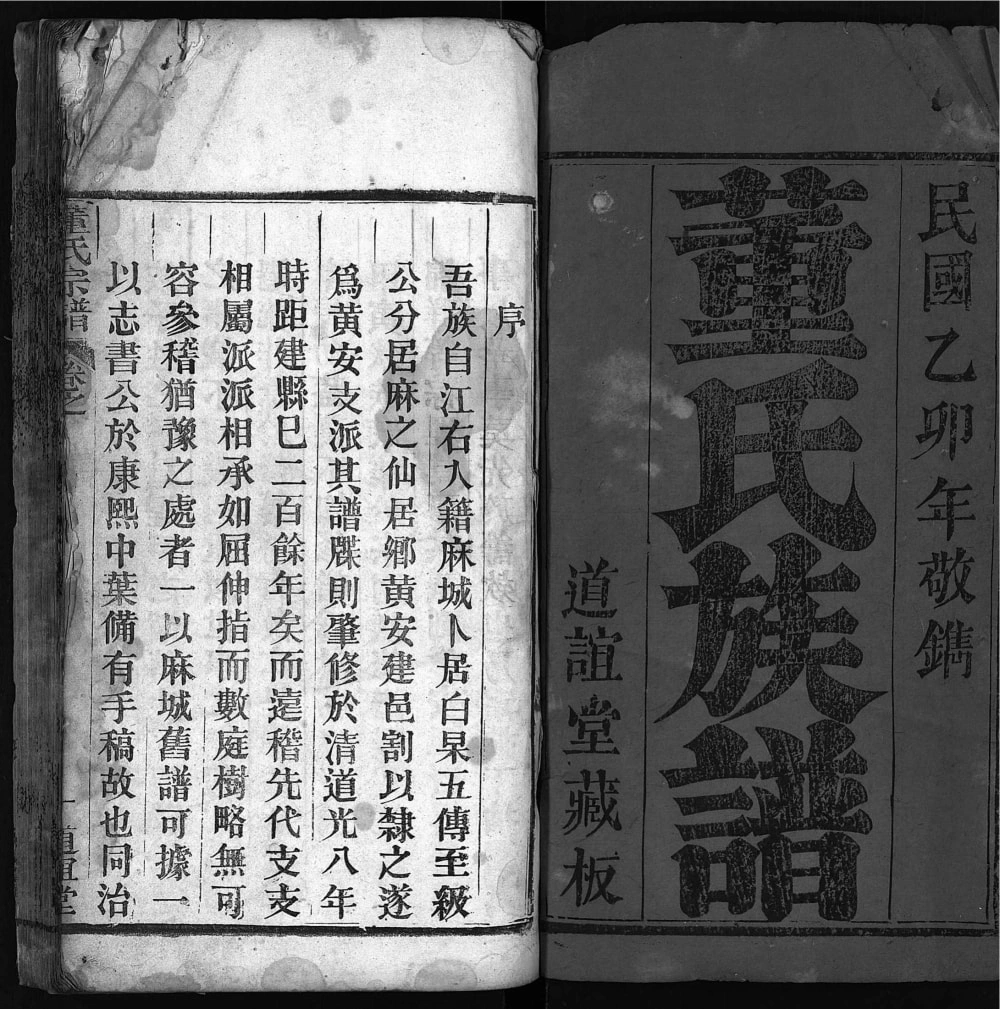 民國乙卯年敬鐫
董氏族譜
道誼堂藏板
序
吾族自江右入籍麻城卜居白杲五傳至級
公分居麻之仙居鄉黃安建邑割以隸之遂
爲黃安支派其譜牒則肇修於清道光八年
時距建縣巳二百餘年矣而遠稽先代支支
相屬派派相承如屈伸指而數庭樹略無可
容參稽猶豫之處者一以麻城舊譜可據一
以志書公於康熙中葉備有手稿故也同治
董氏宗譜 卷之 一 道誼堂